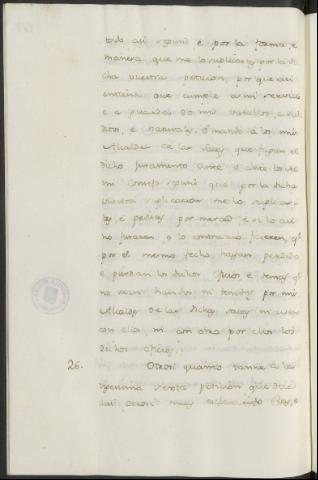 todo asi segund e por la forma, e
manera que me lo suplicastes por la di
cha vuestra peticion, por que asi
entiendo que cumple a mi servicio
e a guarda de mis vasallos, e sub
ditos, e naturales. E mando a los mis
Alcaldes de las Sacas que fagan el
dicho juramento ante e ante los de
mi Consejo segund que por la dicha
vuestra suplicacion me lo suplicas
tes, e pedistes por merced e si lo asi
no juraren, o lo contrario ficieren, q.
por el mesmo fecho hayan perdido
e pierdan los dichos Oficios, e dende
no sean habidos ni tenidos por mis
Alcaldes de las dichas sacas ni usen
con ellos, ni con otro por ellos los
dichos oficios.
26. Otrosi quanto tanne a la
vicesima sexta peticion que dice
asi otrosi muy esclarecido Rey, e